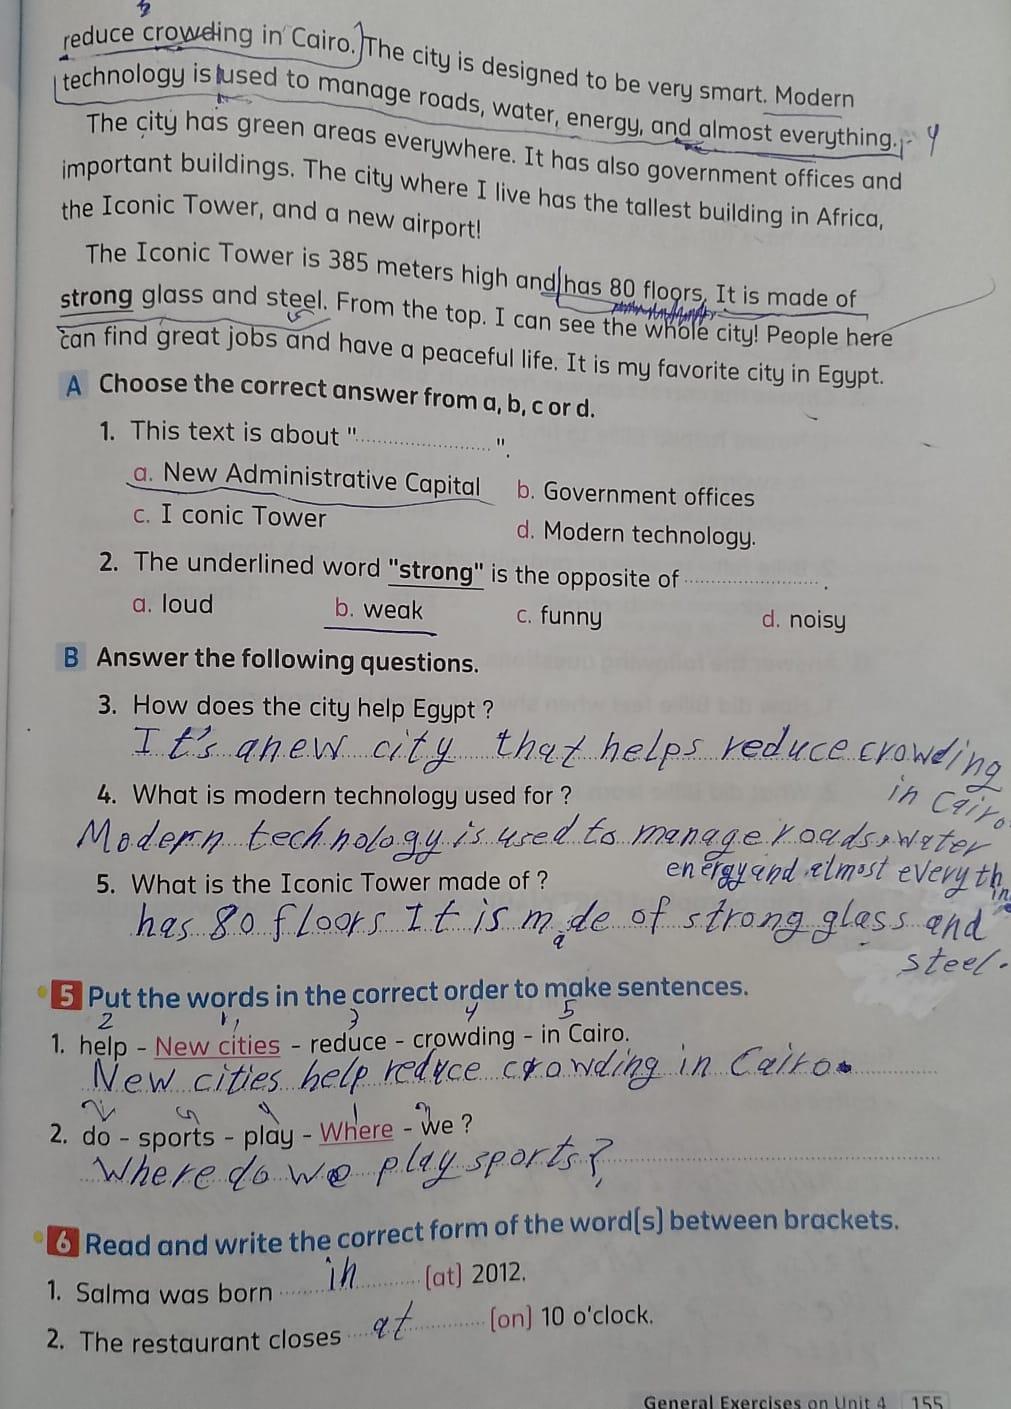 reduce crowding in Cairo. The city is designed to be very smart. Modern
technology is used to manage roads, water, energy, and almost everything. 4
The city has green areas everywhere. It has also government offices and
important buildings. The city where I live has the tallest building in Africa,
the Iconic Tower, and a new airport!
The Iconic Tower is 385 meters high and has 80 floors. It is made of
strong glass and steel. From the top. I can see the whole city! People here
can find great jobs and have a peaceful life. It is my favorite city in Egypt.
A Choose the correct answer from a, b, c or d.
1. This text is about "....................".
a. New Administrative Capital b. Government offices
c. I conic Tower d. Modern technology.
2. The underlined word "strong" is the opposite of .................... .
a. loud b. weak c. funny d. noisy
B Answer the following questions.
3. How does the city help Egypt ?
It's a new city that helps reduce crowding
in Cairo
4. What is modern technology used for ?
Modern technology is used to manage roads, water
energy and almost everythin
5. What is the Iconic Tower made of ?
has 80 floors It is made of strong glass and
steel.
5 Put the words in the correct order to make sentences.
2 1 3 4 5
1. help - New cities - reduce - crowding - in Cairo.
New cities help reduce crowding in Cairo.
2. do - sports - play - Where - we ?
Where do we play sports?
6 Read and write the correct form of the word(s) between brackets.
1. Salma was born in (at) 2012.
2. The restaurant closes at (on) 10 o'clock.
General Exercises on Unit 4 155